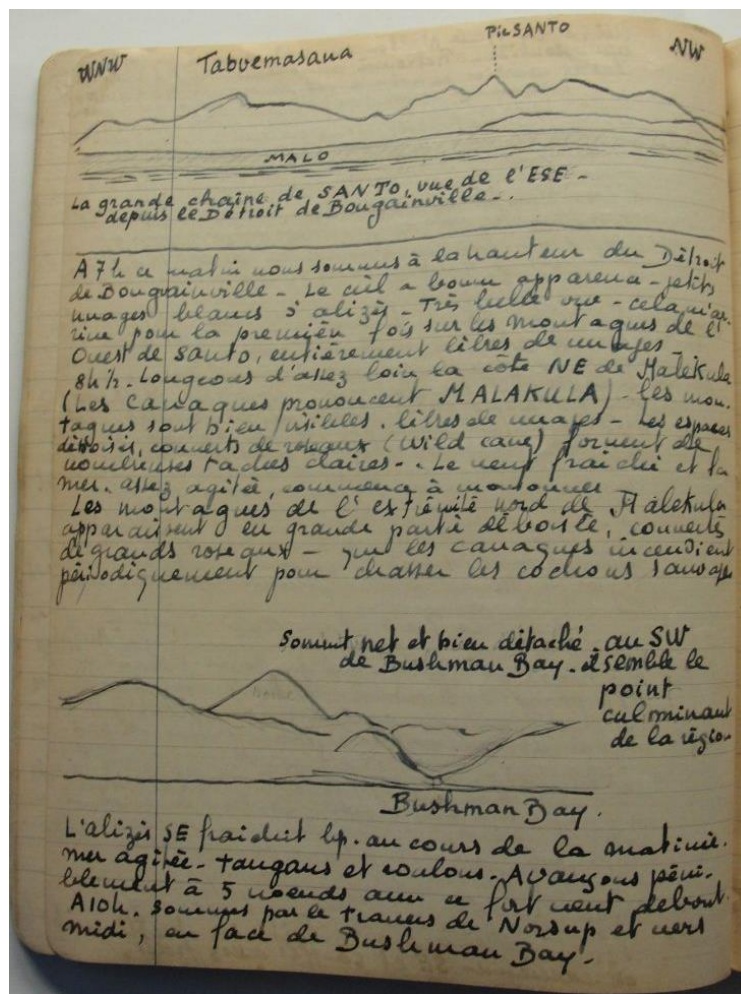 WNW Tabwemasana Pic SANTO NW
MALO
La grande chaîne de SANTO, vue de l'ESE -
depuis le Détroit de Bougainville -.
A 7h ce matin nous sommes à la hauteur du Détroit
de Bougainville - Le ciel a bonne apparence - petits
nuages blancs d'alizés - Très belle vue - cela m'ar-
rive pour la première fois sur les montagnes de l'
Ouest de Santo, entièrement libres de nuages -
8h½. Longeons d'assez loin la côte NE de Malekula
(Les Canaques prononcent MALAKULA) - Les mon-
tagnes sont bien visibles. libres de nuages - Les espaces
déboisés, couverts de roseaux (Wild cane) forment de
nombreuses taches claires -. Le vent fraîchi et la
mer. assez agitée, commence à moutonner -
Les montagnes de l'extrémité nord de Malekula
apparaissent en grande partie déboisée, couvertes
de grands roseaux - que les canaques incendient
périodiquement pour chasser les cochons sauvages
Sommet net et bien détaché au SW
de Bushman Bay. il semble le
point
culminant
de la région
Boisé
Bushman Bay.
L'alizé SE fraîchit bp. au cours de la matinée.
mer agitée - tangons et roulons - Avançons péni-
blement à 5 noeuds avec ce fort vent debout.
A 10h. sommes par le travers de Norsup et vers
midi, en face de Bushman Bay.